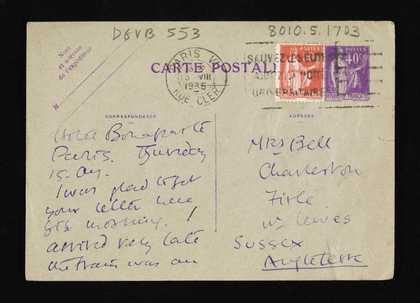 DEVB 553
8010.5.1703
Nom
et adresse
de l'expéditeur
M
PARIS
VIII
1935
RUE CLER
POSTES
40
CARTE POSTALE
CORRESPONDANCE
ADRESSE
Hotel Bonaparte
Paris. Thursday
15. Aug.
I was glad to get
your letter here
this morning. I
arrived very late
the train was an
Mrs Bell
Charleston
Firle
nr Lewes
SUSSEX
Angleterre